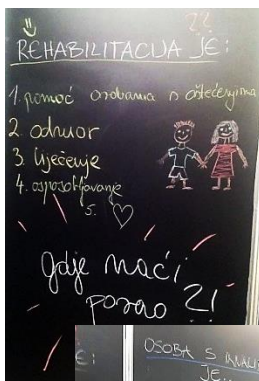 REHABILITACIJA JE:
1. pomoć osobama s oštećenjima
2. odmor
3. liječenje
4. osposobljavanje
5.
gdje naći
posao ?!
OSOBA S INVALI
JE...